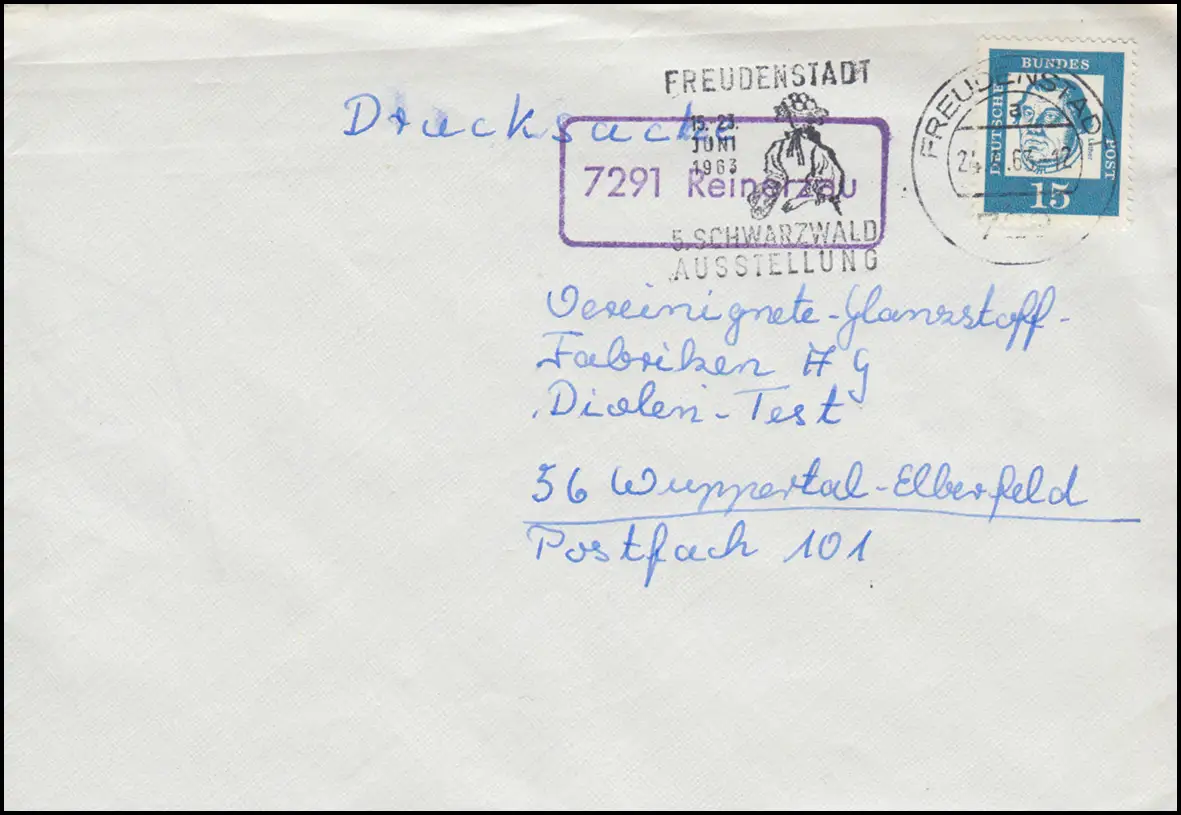 FREUDENSTADT
15.-23.
JUNI
1963
5. SCHWARZWALD
AUSSTELLUNG
Drucksache
7291 Reinerzau
FREUDENSTADT
a
63-12
DEUTSCHE
BUNDES
POST
15
Vereinignete-Glanzstoff-
Fabriken AG
Diolen-Test
56 Wuppertal-Elberfeld
Postfach 101